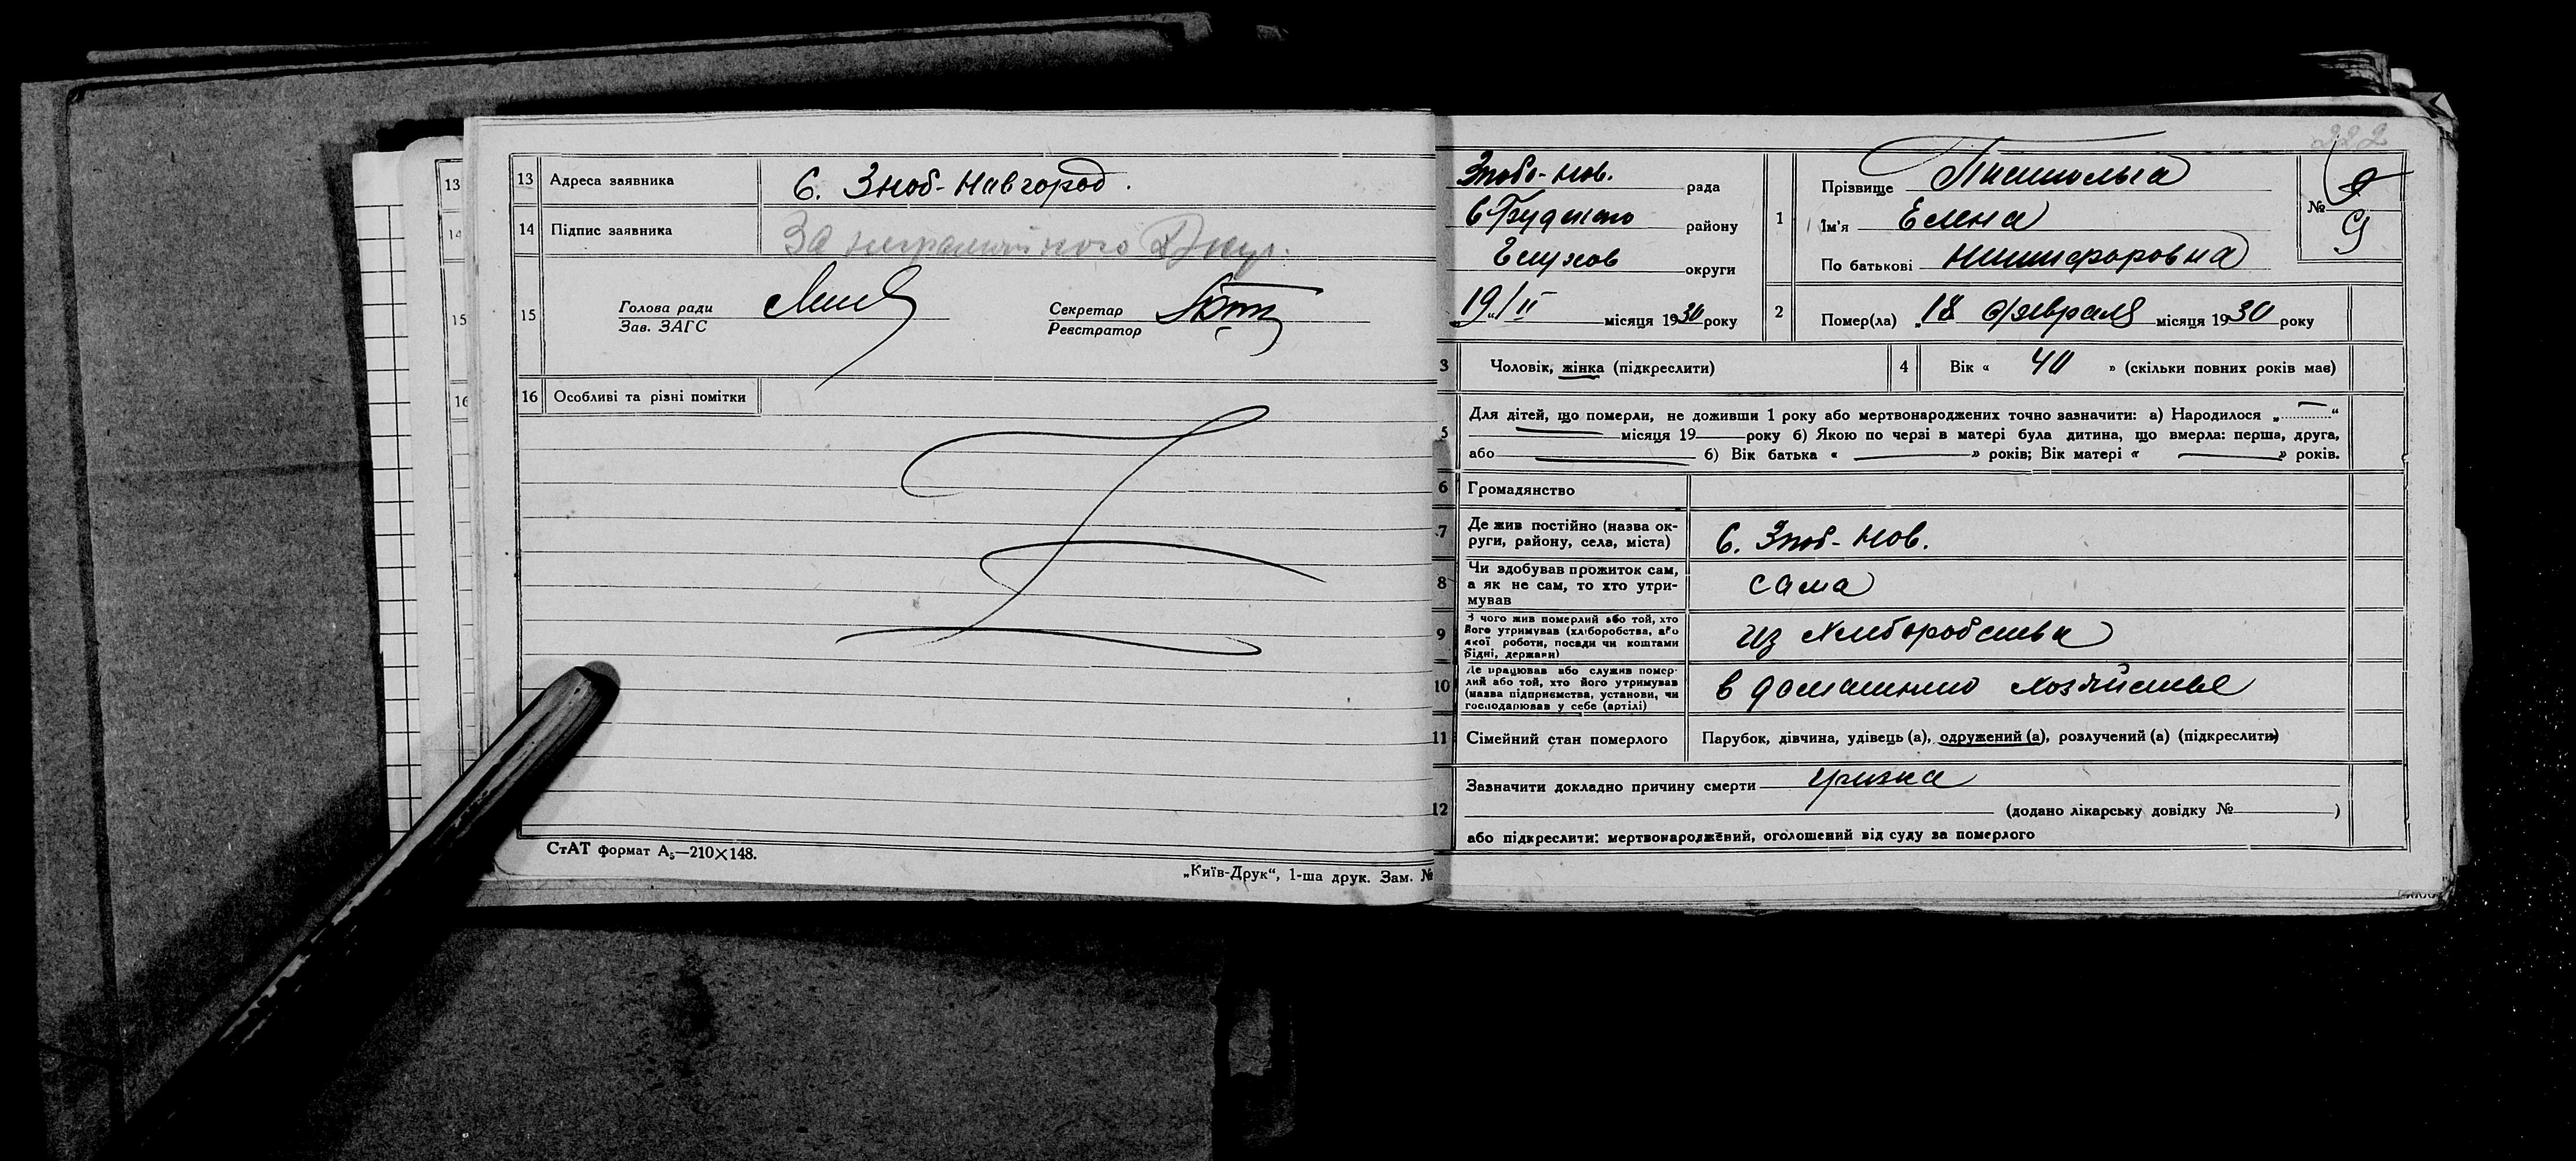 13 Адреса заявника с. Зноб-Новгород.
14 Підпис заявника За неграмотного
15 Голова ради Секретар
Зав. ЗАГС Реєстратор
16 Особливі та різні помітки
СтАТ формат А₅—210×148.
„Київ-Друк“, 1-ша друк. Зам. №
13
14
15
16
222
Зноб-Нов. рада
району
Глухов округи
19/II місяця 1930 року
1 Прізвище
Ім'я Елена
По батькові Никифоровна
№ 9
2 Помер(ла) „18 февраля місяця 1930 року
3 Чоловік, жінка (підкреслити)
4 Вік « 40 » (скільки повних років має)
5 Для дітей, що померли, не доживши 1 року або мертвонароджених точно зазначити: а) Народилося „ “
місяця 19 року б) Якою по черзі в матері була дитина, що вмерла: перша, друга,
або б) Вік батька « » років; Вік матері « » років.
6 Громадянство
7 Де жив постійно (назва ок-
руги, району, села, міста) с. Зноб-Нов.
8 Чи здобував прожиток сам,
а як не сам, то хто утри-
мував сама
9 З чого жив померлий або той, хто
його утримував (хліборобства, або
якої роботи, посади чи коштами
рідні, держави) из Хлеборобства
10 Де працював або служив помер-
лий або той, хто його утримував
(назва підприємства, установи, чи
господарював у себе (артілі) в домашнию хозяйстве
11 Сімейний стан померлого Парубок, дівчина, удівець (а), одружений (а), розлучений (а) (підкреслити)
12 Зазначити докладно причину смерти грижа
(додано лікарську довідку № )
або підкреслити: мертвонароджений, оголошений від суду за померлого